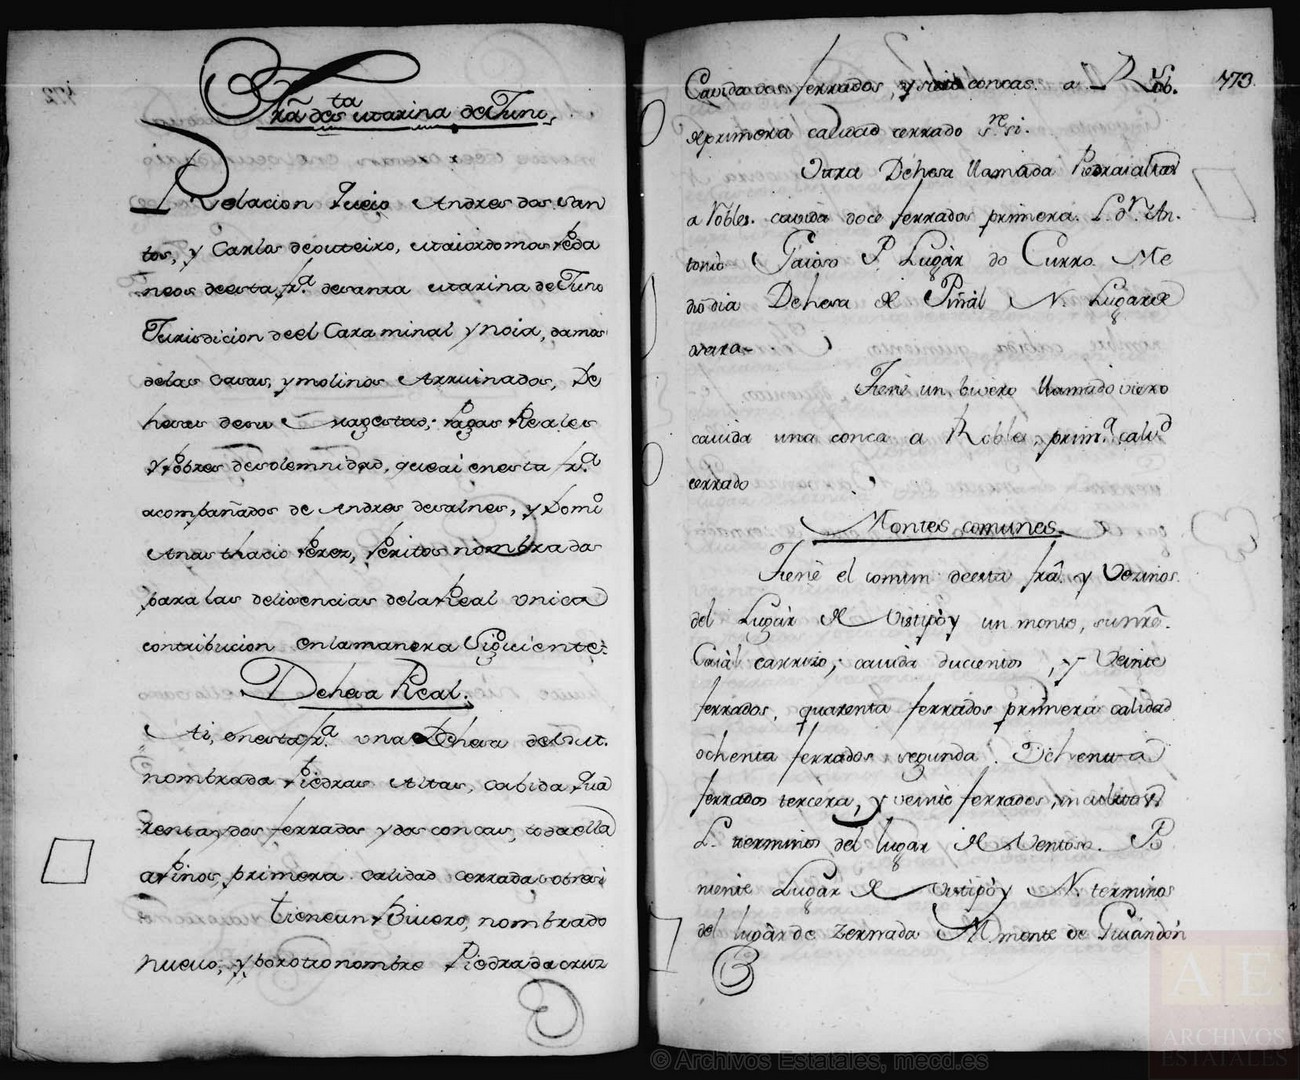 Fra de Sta Marina de Juno.
Relacion Jucio Andres dos San
tos, y Carlos de outeiro, Maiordomos Peda
neos de esta fra. de santa Marina de Juno
Jurisdicion de el Caraminal y noia, damos
de las casas, y molinos Arruinados, De
heses de su Magestad, Pagas Reales
y Pobres de solemnidad, que ai en esta fra
acompañados de Andres de salnes, y Domo
Anasthacio Perez, Peritos nombrados
para las deligencias de la Real Unica
contribucion en la manera Siguiente:
Dehesa Real.
Ai, en esta fra. una Dehesa de S.M.
nombrada Piedras Altas, cabida qua
renta y dos ferrados y dos concas, toda ella
a Pinos, primera calidad cerrada sobresi
tiene un Bivero, nombrado
nuevo, y por otro nombre Piedra da cruz
473.
Cavida dos ferrados, y concas. a Rob.
de primera calidad cerrado sre. si.
Otra Dehesa llamada Piedras altas
a Robles. cavida doce ferrados primera. L. dn. An.
tonio Gaioso P. Lugar do Curro. Me
dio dia Dehesa de Piñal N. Lugar de
vara-
Tiene un bivero llamado viero
cavida una conca a Robles, prima. calid
cerrado
Montes comunes.
Tiene el comun de esta fra. y Vezinos
del Lugar de un monte, su nre.
carrizo, cavida ducientos, y Veinte
ferrados, quarenta ferrados primera calidad
ochenta ferrados segunda. Ochenta
ferrados tercera, y veinte ferrados, inutiles
L. terminos del lugar de Ventoso. Po
niente Lugar de N. terminos
del lugar de Zernada M. monte de Guiandon
© Archivos Estatales, mecd.es
AE
ARCHIVOS
ESTATALES